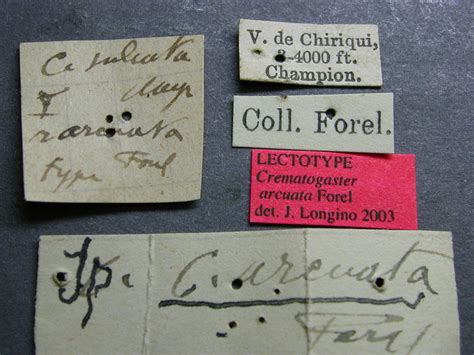 C. sulcata
Mayr
r. arcuata
type Forel
V. de Chiriqui,
-4000 ft.
Champion.
Coll. Forel.
LECTOTYPE
Crematogaster
arcuata Forel
det. J. Longino 2003
C. arcuata
Forel